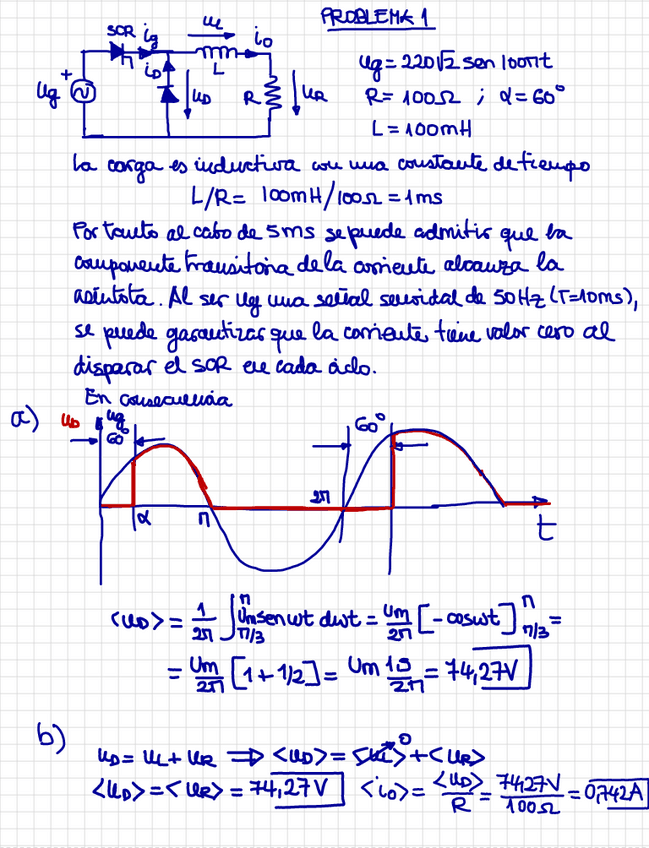 PROBLEMA 1
SCR ig uL io
iD L
ug + uD R uR
ug = 220√2 sen 100πt
R = 100Ω ; α = 60°
L = 100mH
La carga es inductiva con una constante de tiempo
L/R = 100mH/100Ω = 1ms
Por tanto al cabo de 5ms se puede admitir que la
componente transitoria de la corriente alcanza la
asíntota. Al ser ug una señal senoidal de 50Hz (T=10ms),
se puede garantizar que la corriente tiene valor cero al
disparar el SCR en cada ciclo.
En consecuencia
a) uD ug
60° 60°
α π 2π t
<uD> = 1/2π ∫π/3^π Um sen wt dwt = Um/2π [-cos wt]π/3^π =
= Um/2π [1 + 1/2] = Um 1,5/2π = 74,27V
b)
uD = uL + uR ⟹ <uD> = <uL>^0 + <uR>
<uD> = <uR> = 74,27V <io> = <uD>/R = 74,27V/100Ω = 0,742A